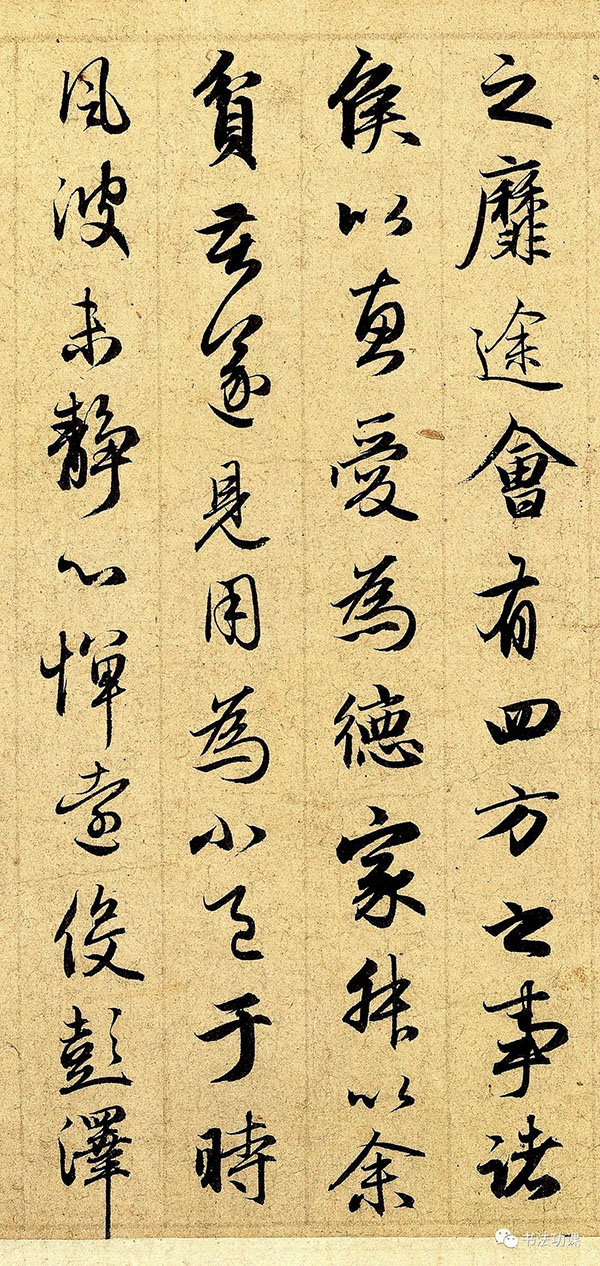 之靡途會有四方之事諸
侯以惠愛為德家叔以余
貧苦遂見用為小邑于時
風波未靜心憚遠役彭澤
书法功课